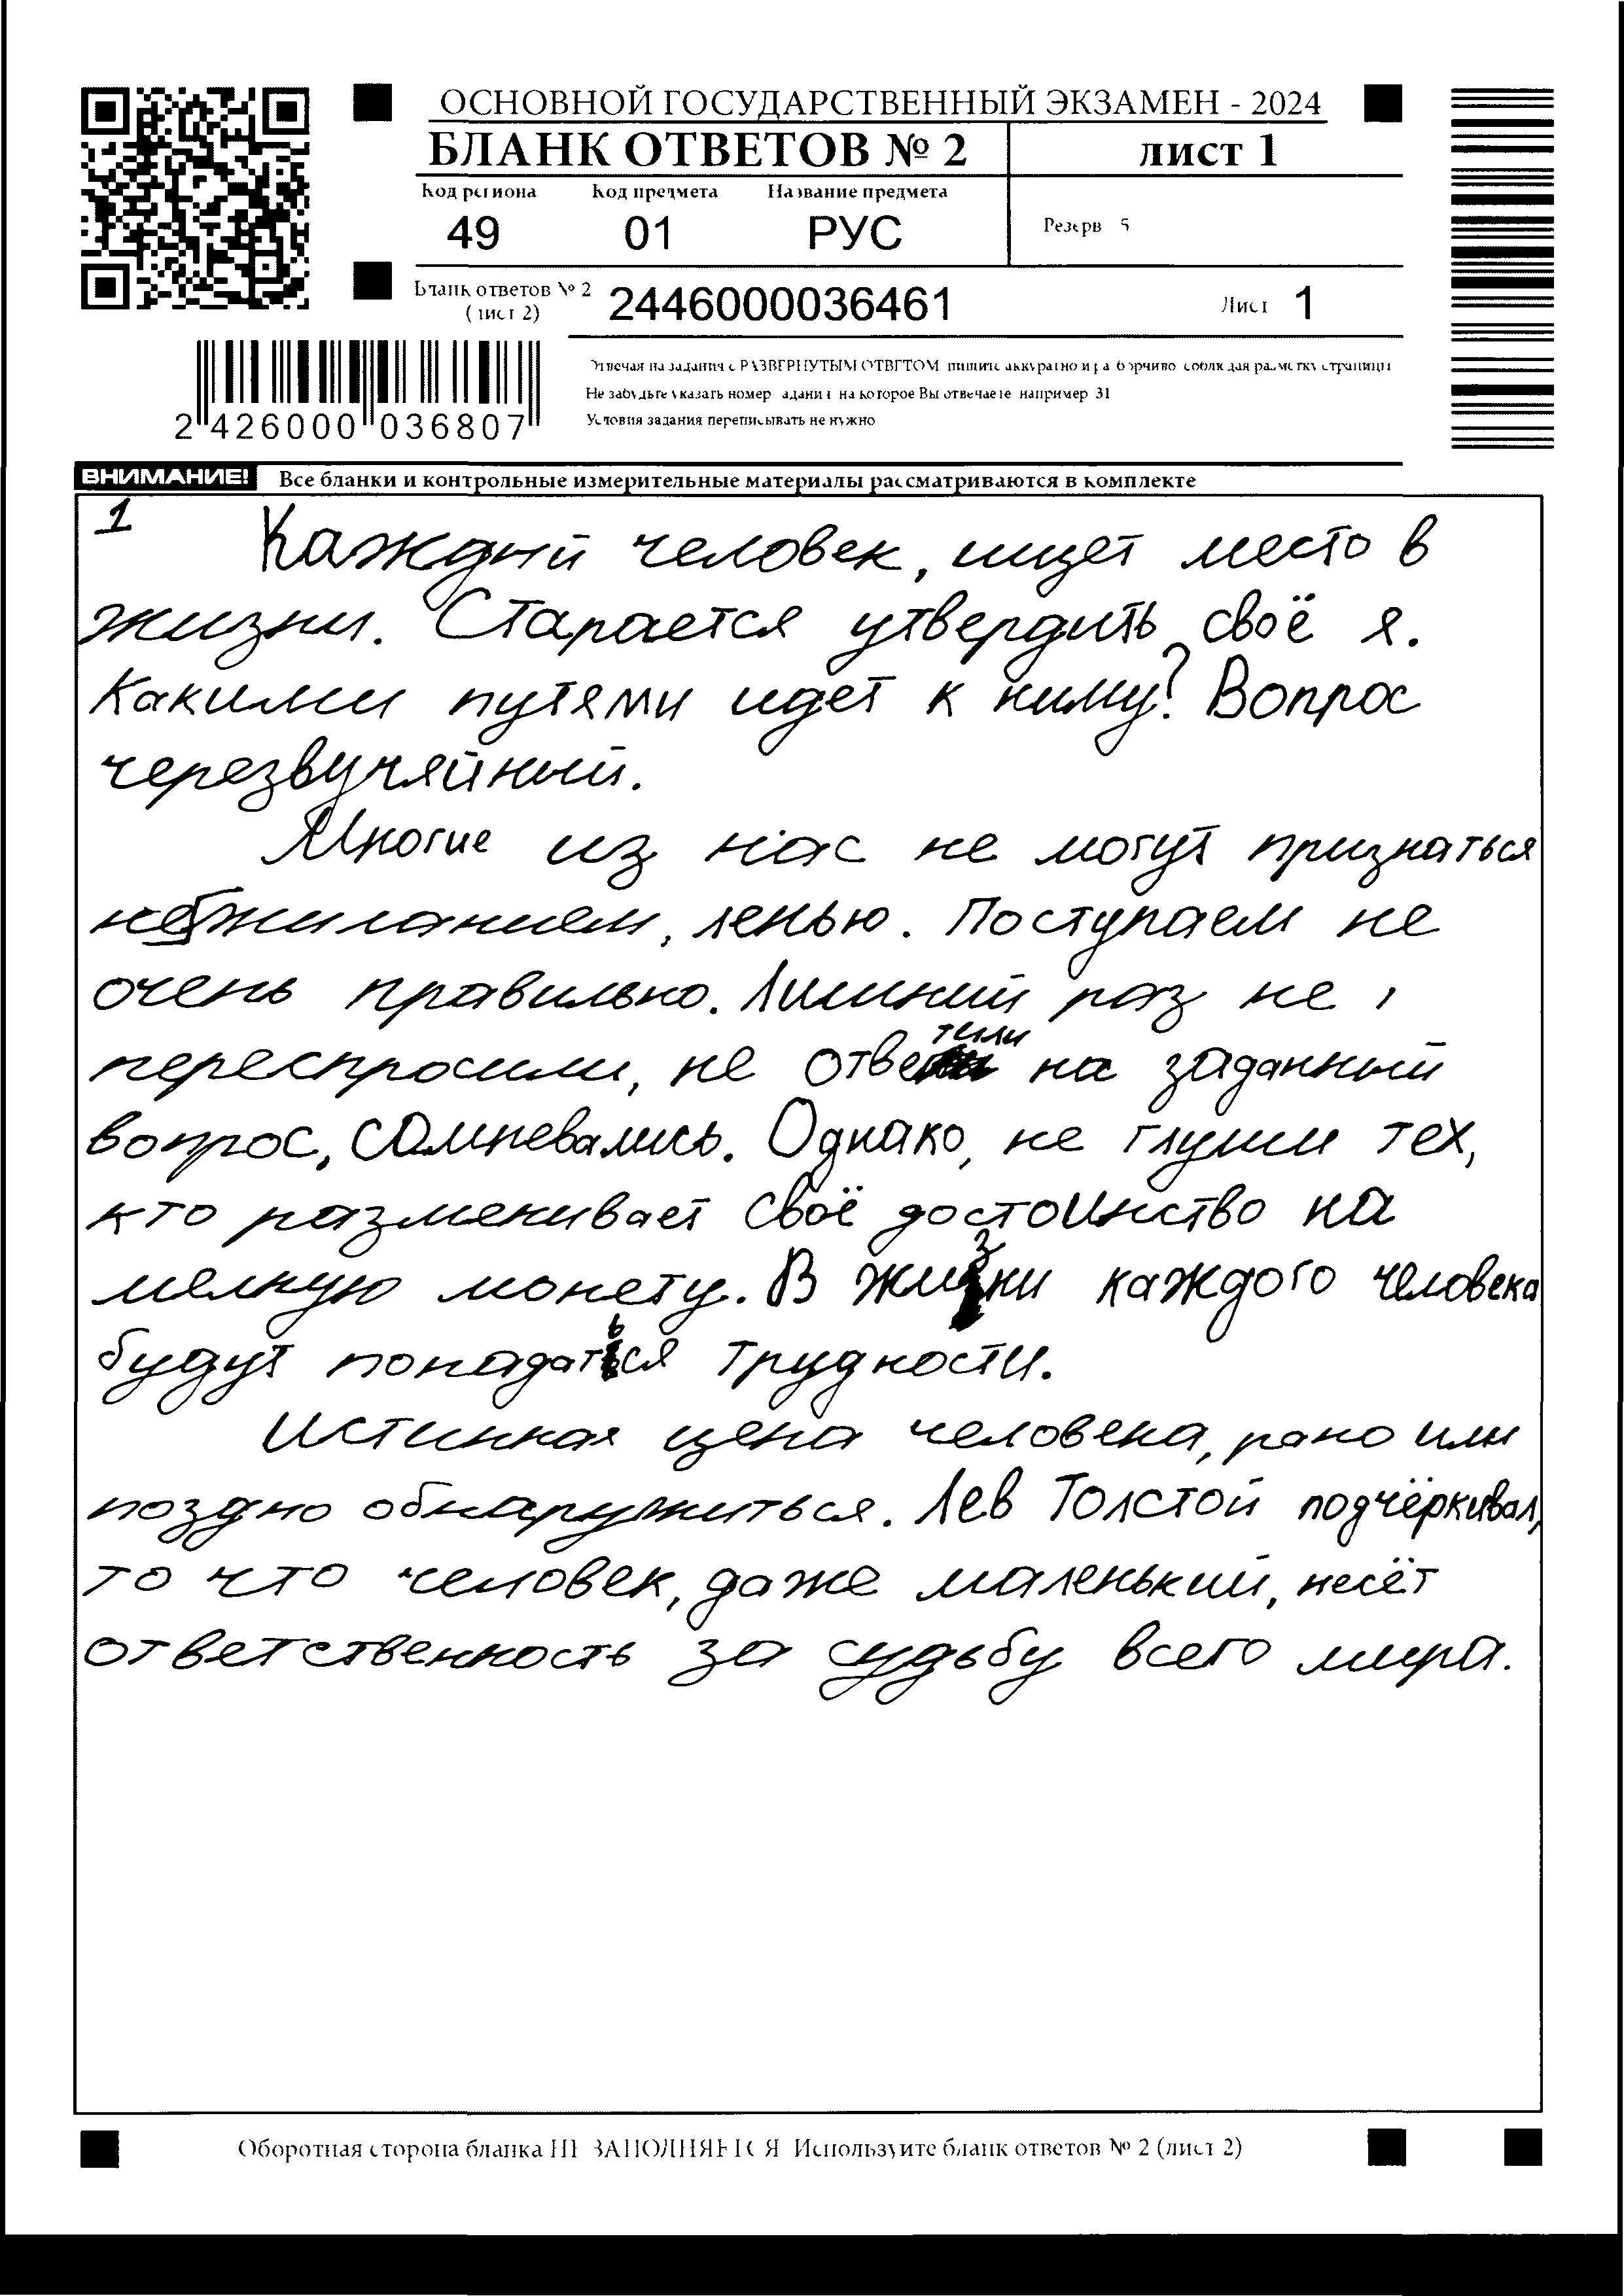 ОСНОВНОЙ ГОСУДАРСТВЕННЫЙ ЭКЗАМЕН - 2024
БЛАНК ОТВЕТОВ № 2
лист 1
Код региона Код предмета Название предмета
49 01 РУС
Резерв 5
Бланк ответов № 2
(лист 2)
2446000036461
Лист 1
2 426000 036807
Отвечая на задания с РАЗВЕРНУТЫМ ОТВЕТОМ пишите аккуратно и разборчиво соблюдая разметку страницы
Не забудьте указать номер задания на которое Вы отвечаете например 31
Условия задания переписывать не нужно
ВНИМАНИЕ! Все бланки и контрольные измерительные материалы рассматриваются в комплекте
1 Каждый человек, ищет место в
жизни. Старается утвердить своё я.
Какими путями идет к ниму? Вопрос
черезвучяйный.
Многие из нас не могут признаться
нежиланием, ленью. Поступаем не
очень правильно. Лишний раз не
переспросили, не ответили на заданный
вопрос, сомневались. Однако, не глуши тех,
кто разменивает своё достоинство на
мелкую монету. В жизни каждого человека
будут попадаться трудности.
Истинная цена человека, рано или
поздно обнаружиться. Лев Толстой подчёркивал,
то что человек, даже маленький, несёт
ответственность за судьбу всего мира.
Оборотная сторона бланка НЕ ЗАПОЛНЯЕТСЯ Используите бланк ответов № 2 (лист 2)